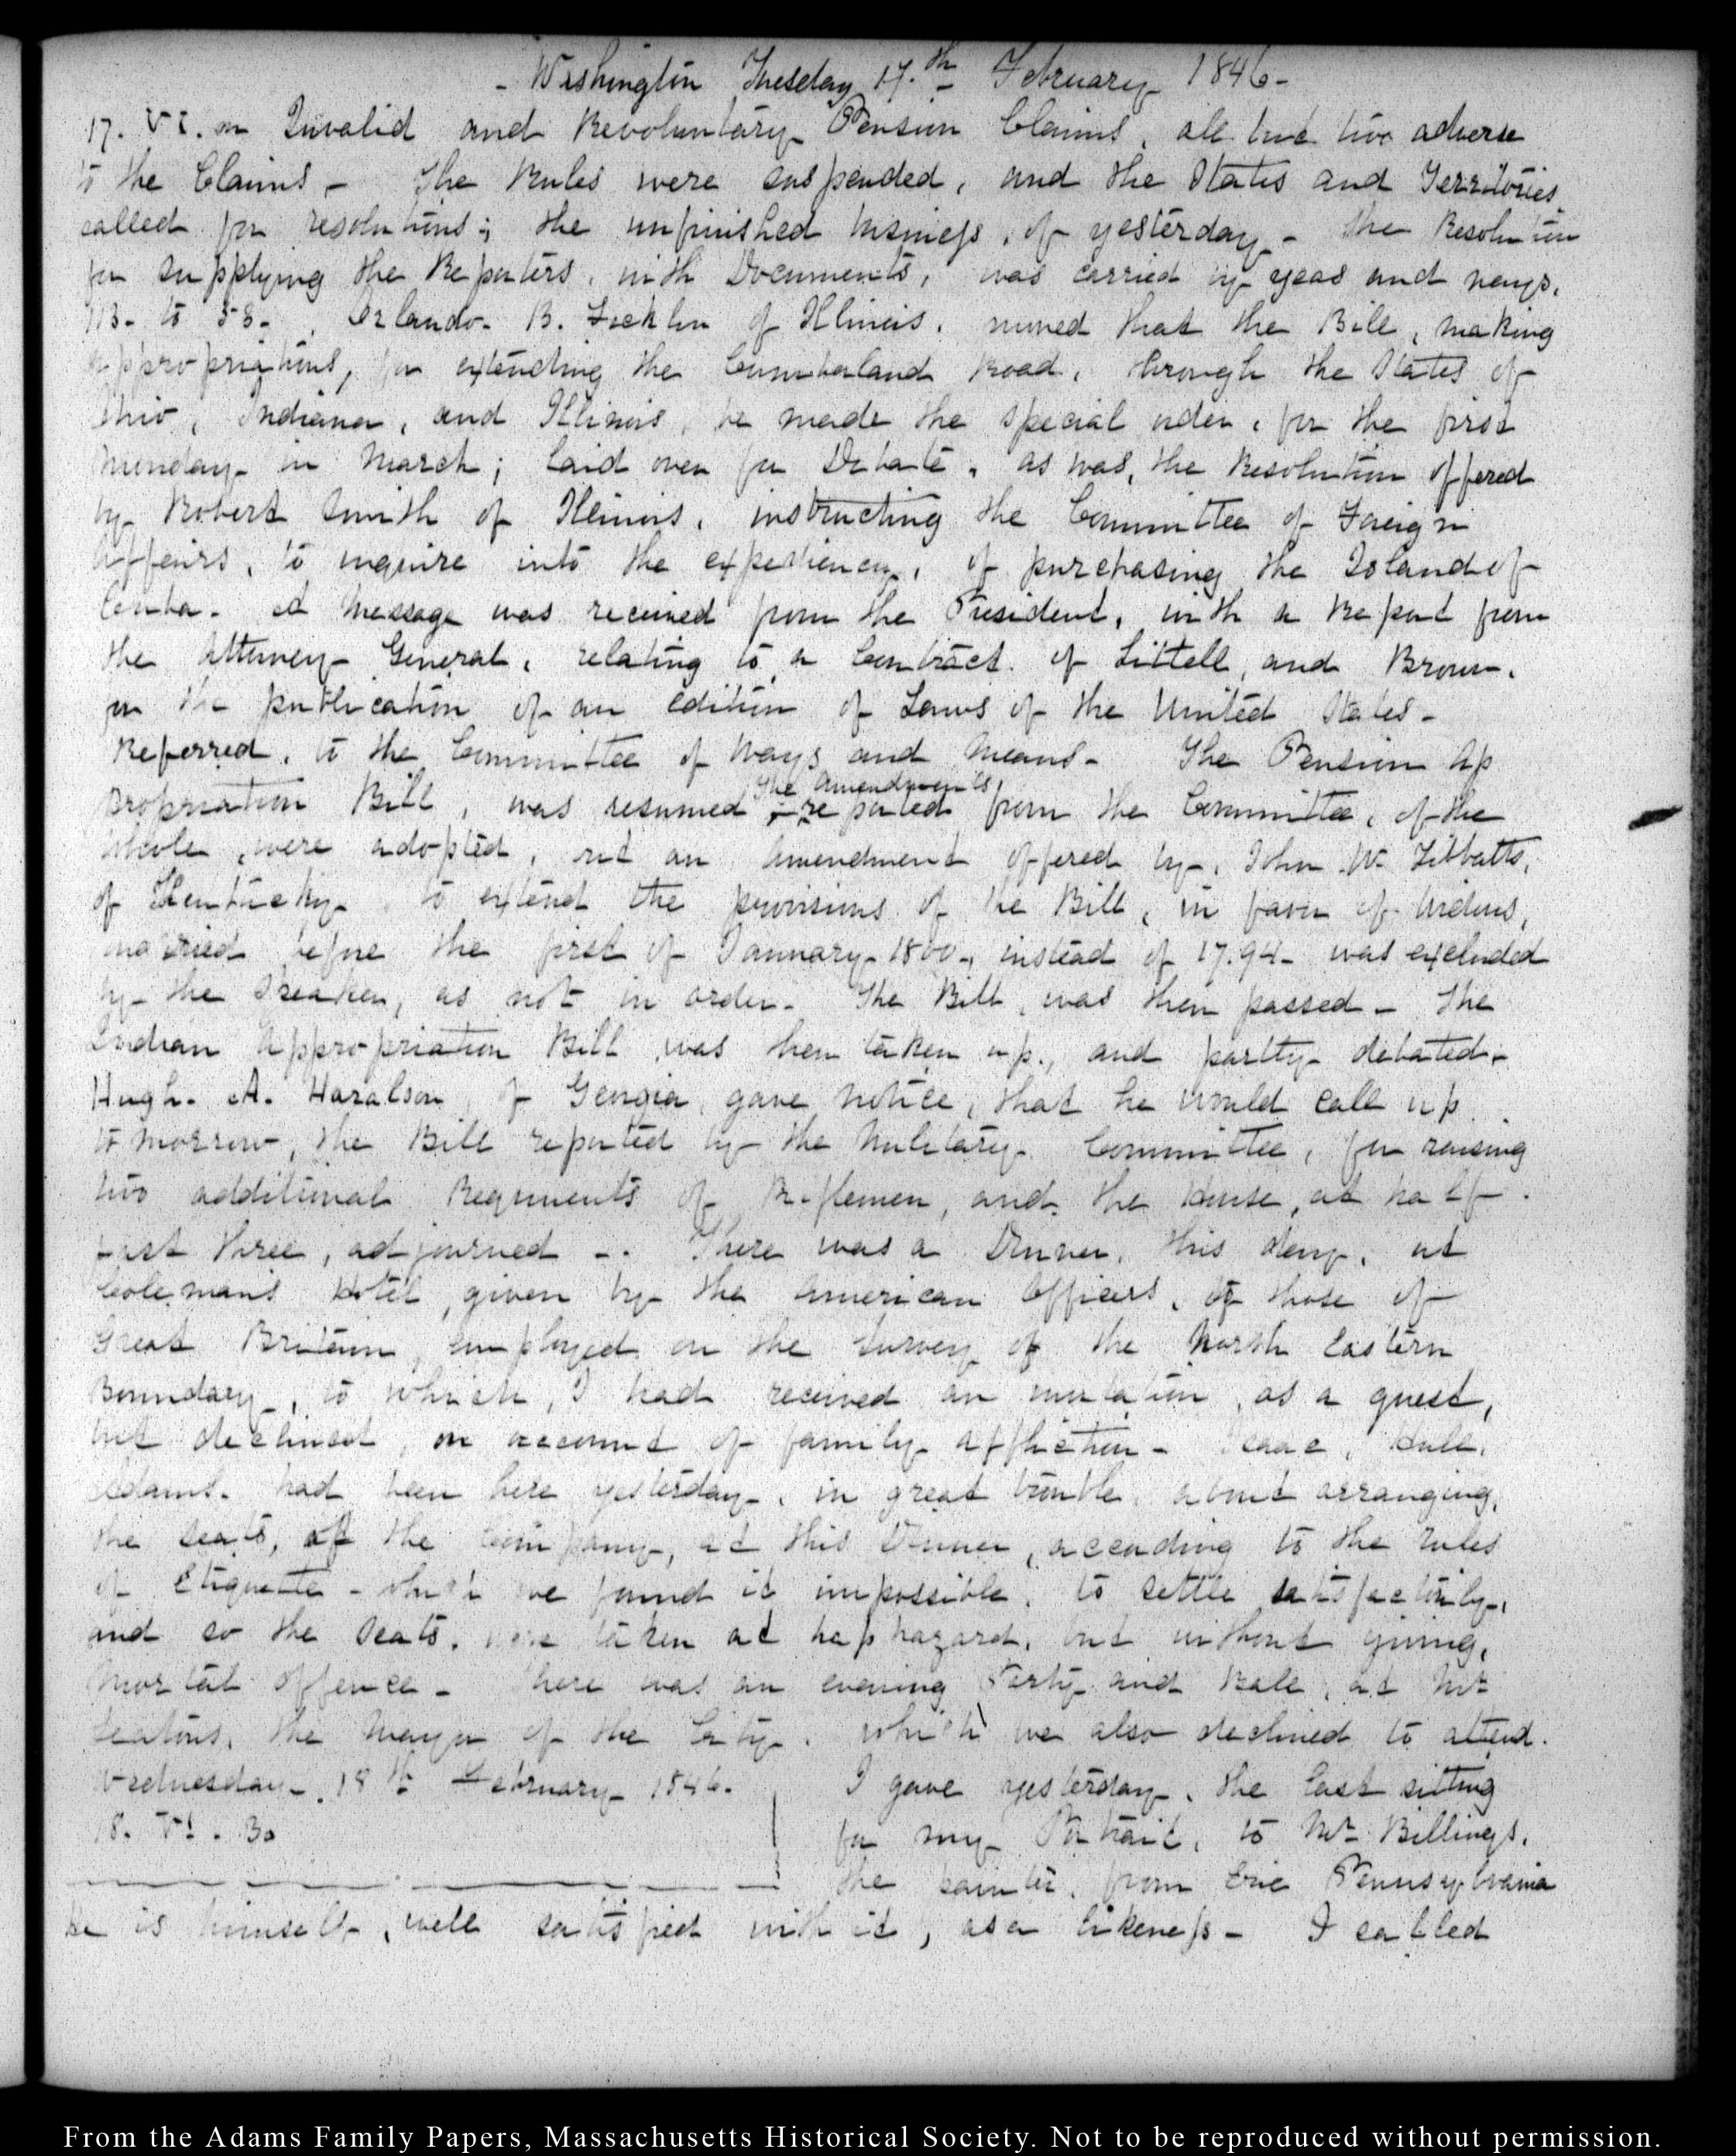 - Washington Tuesday 17.th February 1846-
17. VI. on Invalid and Revolutionary Pension Claims, all but two adverse
to the Claims - The Rules were suspended, and the States and Territories
called for resolutions; the unfinished business, of yesterday - The Resolution
for supplying the Reporters, with Documents, was carried by yeas and nays.
113. to 58. Orlando. B. Ficklin of Illinois, moved that the Bill, making
appropriations, for extending the Cumberland Road, through the States of
Ohio, Indiana, and Illinois, be made the special order, for the first
Monday in March; laid over for Debate, as was, the Resolution offered
by Robert Smith of Illinois, instructing the Committee of Foreign
Affairs, to inquire into the expediency, of purchasing the Island of
Cuba. A Message was received from the President, with a Report from
the Attorney General, relating to a Contract of Littell, and Brown,
for the publication of an Edition of Laws of the United States -
Referred, to the Committee of Ways and Means - The Pension Ap
propriation Bill, was resumed
The Amendments
reported from the Committee, of the
whole, were adopted, but an Amendment offered by, John W. Tibbatts,
of Kentucky to extend the provisions of the Bill, in favor of Widows,
married before the first of January 1800, instead of 17.94 - was excluded
by the Speaker, as not in order - The Bill, was then passed - The
Indian Appropriation Bill was then taken up, and partly debated.
Hugh. A. Haralson, of Georgia, gave notice, that he would call up
to morrow, the Bill reported by the Military Committee, for raising
two additional Regiments of Riflemen, and the House, at half
past three, adjourned -. There was a Dinner, this day, at
Coleman's Hotel, given by the American Officers, to those of
Great Britain, employed on the Survey of the North Eastern
Boundary, to which, I had received an invitation, as a guest,
but declined, on account of family affliction - Isaac, Hull,
Adams. had been here yesterday, in great trouble, about arranging,
the seats, of the Company, at this Dinner, according to the rules
of Etiquette - which we found it impossible, to settle satisfactorily,
and so the Seats, were taken at haphazard, but without giving,
mortal offence - There was an evening Party and Ball, at Mr
Seatons, the Mayor of the City, which we also declined to attend.
Wednesday, 18th February 1846.
18. VI. 30
I gave yesterday, the last sitting
for my Portrait, to Mr Billings,
the painter, from Erie Pennsylvania
he is himself, well satisfied with it, as a likeness - I called
From the Adams Family Papers, Massachusetts Historical Society. Not to be reproduced without permission.